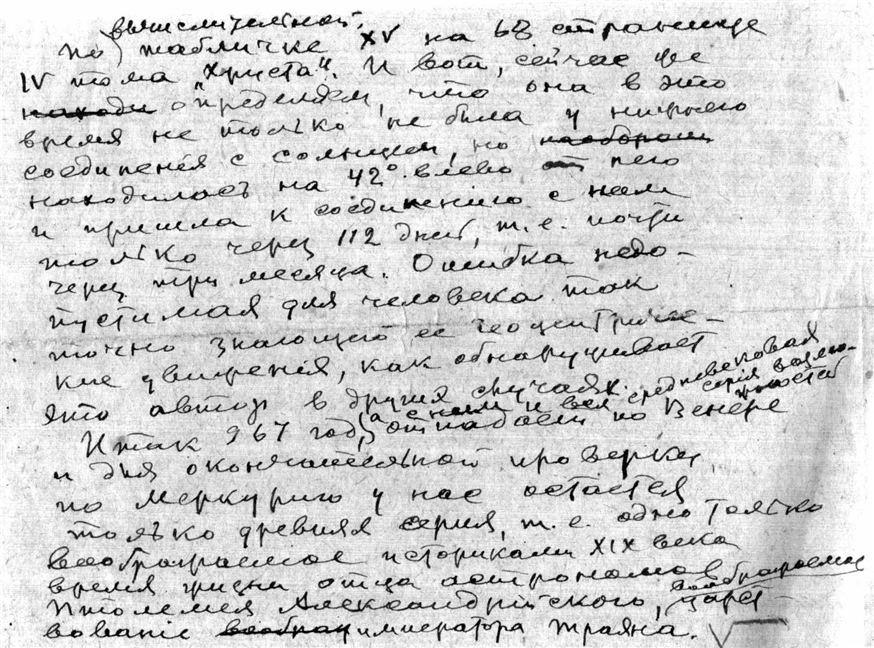 вычислительной
по табличке XV на 68 странице
IV тома "Христа". И вот, сейчас же
находи определяем, что она в это
время не только не была у нижнего
соединения с солнцем, но наоборот
находилась на 42° влево от него
и пришла к соединению с ним
только через 112 дней, т.е. почти
через три месяца. Ошибка недо-
пустимая для человека так
точно знающего ее геоцентриче-
кие движения, как обнаруживает
это автор в других случаях.
Итак 967 год, а с ним и вся средневековая
серия возмо-
жностей
отпадает по Венере
и для окончательной проверки
по Меркурию у нас остается
только древняя серия, т.е. одно только
воображаемое историками XIX века
время жизни отца астрономов
Птолемея Александрийского, воображаемое
царст-
вованiе воображ императора Траяна.